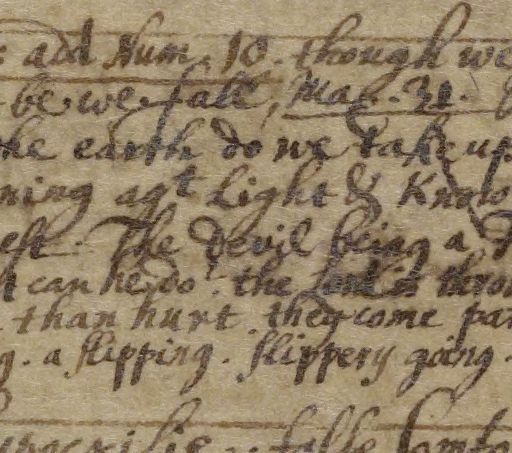 : add Num. 10. though we
be we fall,
the earth do we take up
ning agt Light & Know
est. The Devil being a
can he do. the throw
than hurt. they come par
g. a slipping. slippery going.
false